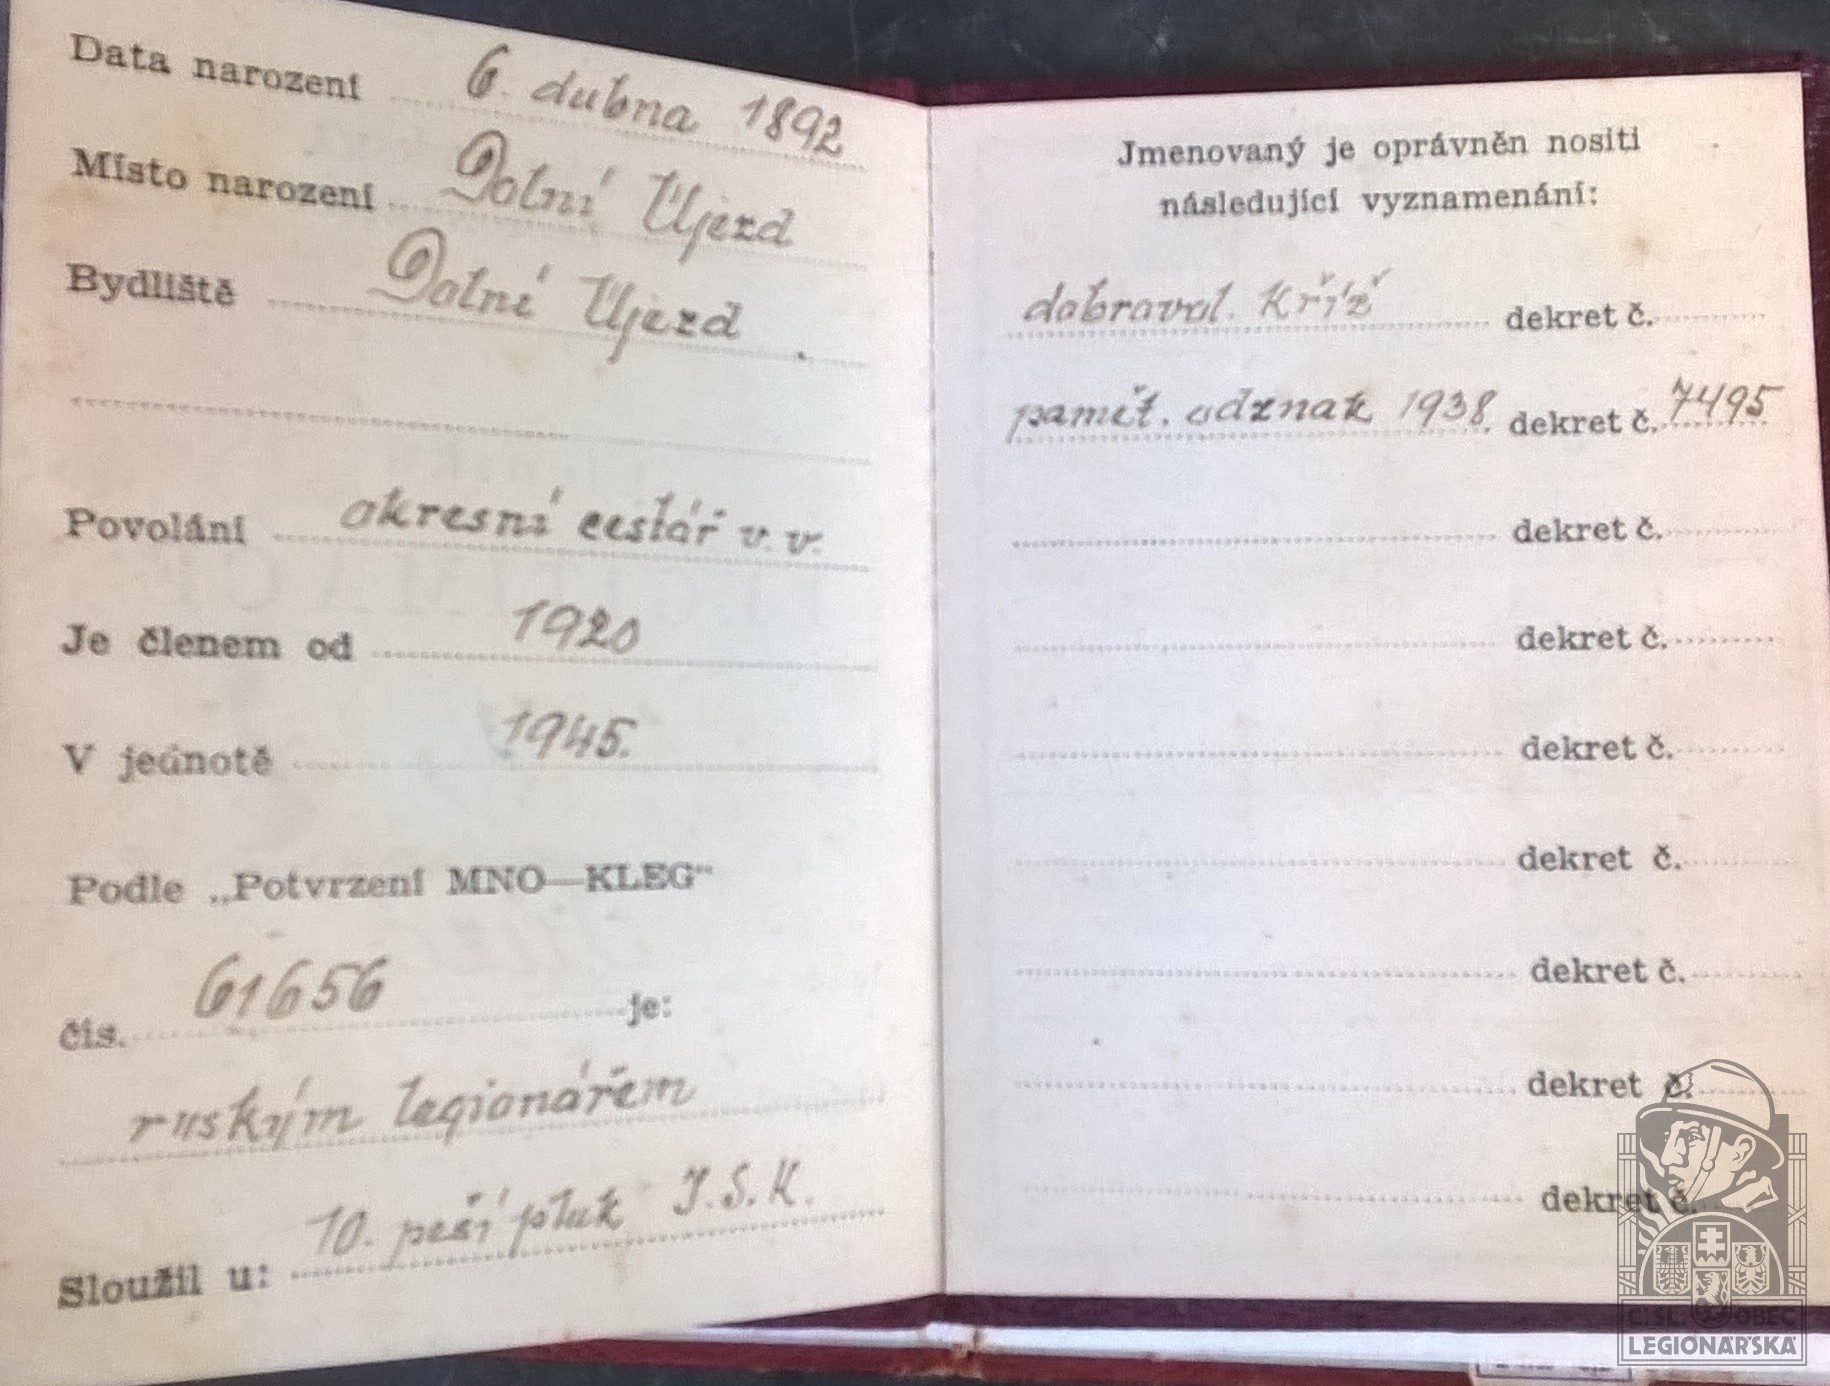 Data narození 6. dubna 1892
Místo narození Dolní Újezd
Bydliště Dolní Újezd
Povolání okresní cestář v.v.
Je členem od 1920
V jednotě 1945.
Podle „Potvrzení MNO—KLEG“
čís. 61656 je:
ruským legionářem
Sloužil u: 10. pěší pluk J.S.K.
Jmenovaný je oprávněn nositi
následující vyznamenání:
dobrovol. Kříž dekret č.
pamět. odznak 1938. dekret č. 7495
dekret č.
dekret č.
dekret č.
dekret č.
dekret č.
dekret č.
dekret č.
Č.SL. OBEC
LEGIONÁŘSKÁ